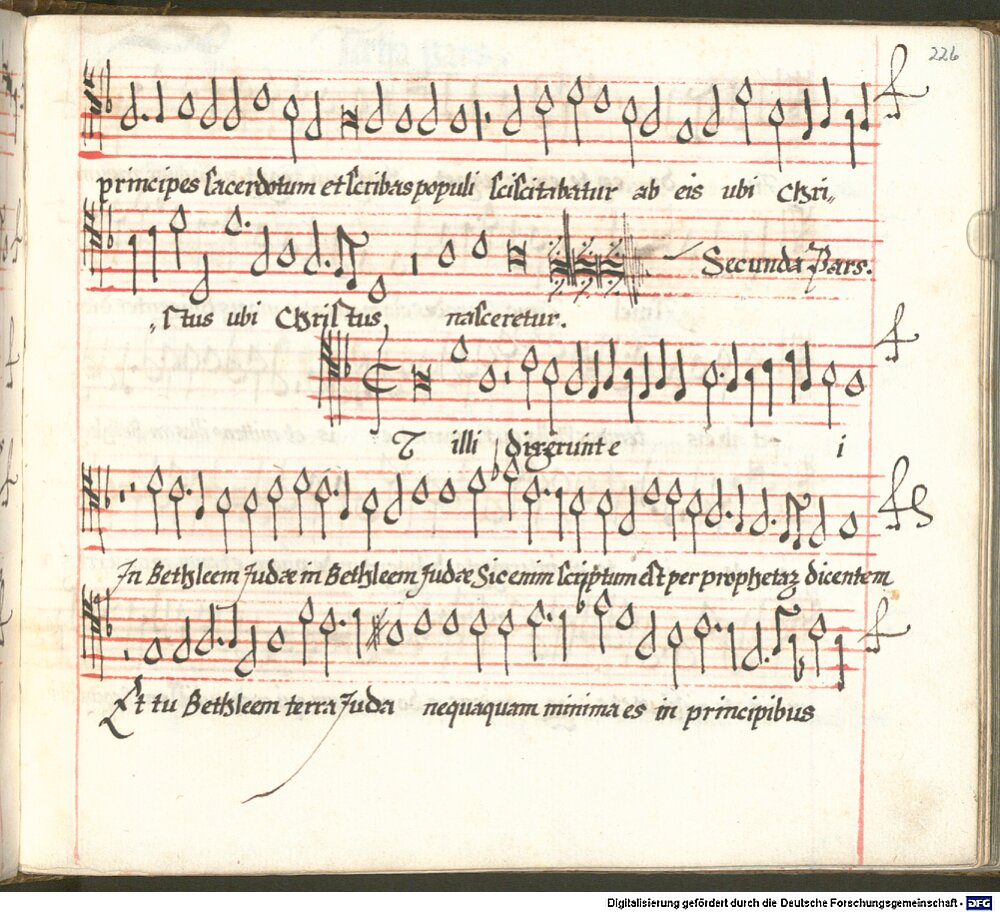 226
principes sacerdotum et scribas populi sciscitabatur ab eis ubi Chri„
„stus ubi Christus, nasceretur.
Secunda Pars.
T illi dixerunt e i
In Bethleem Judæ in Bethleem Judæ Sic enim scriptum est per prophetaz dicentem
Et tu Bethleem terra Juda nequaquam minima es in principibus
Digitalisierung gefördert durch die Deutsche Forschungsgemeinschaft - DFG